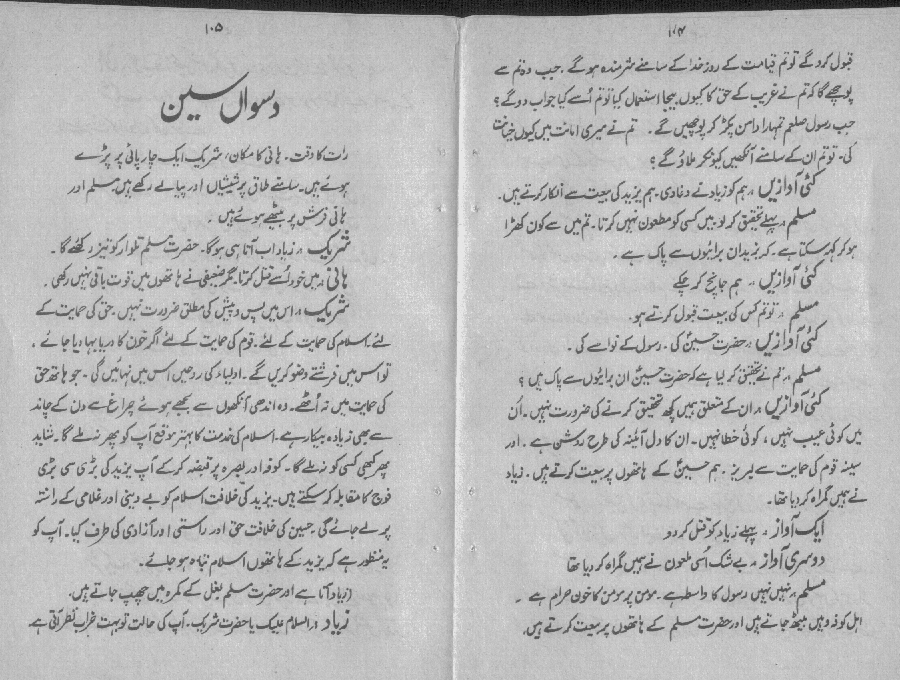 ۱۰۴
قبول کرو گے تو تم قیامت کے روز خدا کے سامنے شرمندہ ہو گے۔ جب وہ تم سے
پوچھے گا کہ تم نے غریب کے حق کا کیوں بیجا استعمال کیا تو تم اُسے کیا جواب دو گے؟
جب رسول صلعم تمہارا دامن پکڑ کر پوچھیں گے۔ تم نے میری امانت میں کیوں خیانت
کی۔ تو تم ان کے سامنے آنکھیں کیونکر ملاؤ گے؟
کئی آوازیں۔ ہم کو زیاد نے دغا دی۔ ہم یزید کی بیعت سے انکار کرتے ہیں۔
مسلم۔ پہلے تحقیق کر لو۔ میں کسی کو مطعون نہیں کرتا۔ تم میں سے کون کھڑا
ہو کر کہہ سکتا ہے۔ کہ یزید ان برائیوں سے پاک ہے۔
کئی آوازیں۔ ہم جانچ کر چکے
مسلم۔ تو تم کس کی بیعت قبول کرتے ہو۔
کئی آوازیں۔ حضرت حسینؑ کی۔ رسول کے نواسے کی۔
مسلم۔ تم نے تحقیق کر لیا ہے کہ حضرت حسینؑ ان برائیوں سے پاک ہیں؟
کئی آوازیں۔ ان کے متعلق ہمیں کچھ تحقیق کرنے کی ضرورت نہیں۔ اُن
میں کوئی عیب نہیں، کوئی خطا نہیں۔ ان کا دل آئینہ کی طرح روشن ہے۔ اور
سینہ قوم کی حمایت سے لبریز۔ ہم حسینؑ کے ہاتھوں پر بیعت کرتے ہیں۔ زیاد
نے ہمیں گمراہ کر دیا تھا۔
ایک آواز۔ پہلے زیاد کو قتل کر دو
دوسری آواز۔ بے شک اُسی ملعون نے ہمیں گمراہ کر دیا تھا
مسلم۔ نہیں نہیں رسول کا واسطہ ہے۔ مومن پر مومن کا خون حرام ہے۔
اہل کوفہ وہیں بیٹھ جاتے ہیں اور حضرت مسلم کے ہاتھوں پر بیعت کرتے ہیں۔
۱۰۵
دسواں سین
رات کا وقت۔ ہانی کا مکان، شریک ایک چارپائی پر پڑے
ہوئے ہیں۔ سامنے طاق پر شیشیاں اور پیالے رکھے ہیں۔ مسلم اور
ہانی فرش پر بیٹھے ہوئے ہیں۔
شریک۔ زیاد اب آتا ہی ہوگا۔ حضرت مسلم تلوار کو تیز رکھئے گا۔
ہانی۔ میں خود اُسے قتل کرتا۔ مگر ضعیفی نے ہاتھوں میں قوت باقی نہیں رکھی۔
شریک۔ اس میں پس و پیش کی مطلق ضرورت نہیں۔ حق کی حمایت کے
لئے۔ اسلام کی حمایت کے لئے۔ قوم کی حمایت کے لئے اگر خون کا دریا بہا دیا جائے،
تو اس میں فرشتے وضو کریں گے۔ اولیاء کی روحیں اس میں نہائیں گی۔ جو ہاتھ حق
کی حمایت میں نہ اُٹھے۔ وہ اندھی آنکھوں سے بجھے ہوئے چراغ سے دن کے چاند
سے بھی زیادہ بیکار ہے۔ اسلام کی خدمت کا بہتر موقع آپ کو پھر نہ ملے گا۔ شاید
پھر کبھی کسی کو نہ ملے گا۔ کوفہ اور بصرہ پر قبضہ کر کے آپ یزید کی بڑی سی بڑی
فوج کا مقابلہ کر سکتے ہیں۔ یزید کی خلافت اسلام کو بے دینی اور غلامی کے راستہ
پر لے جائے گی۔ حسین کی خلافت حق اور راستی اور آزادی کی طرف کیا۔ آپ کو
یہ منظور ہے کہ یزید کے ہاتھوں اسلام تباہ ہو جائے۔
(زیاد آتا ہے اور حضرت مسلم بغل کے کمرہ میں چھپ جاتے ہیں۔
زیاد۔ السلام علیک یا حضرت شریک۔ آپ کی حالت تو بہت خراب نظر آتی ہے۔